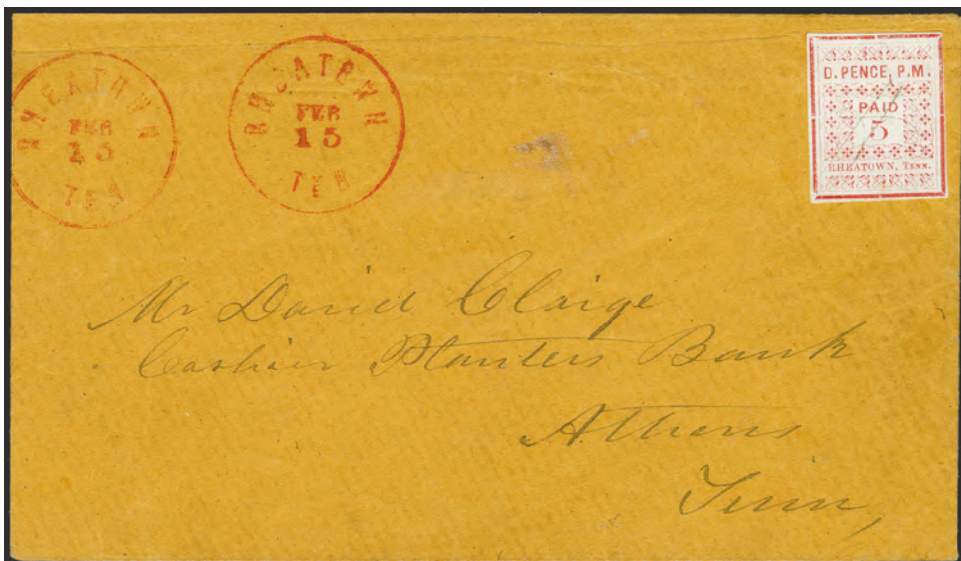 RHEATOWN
FEB
15
TEN
RHEATOWN
FEB
15
TEN
D. PENCE, P.M.
PAID
5
RHEATOWN, TENN.
Mr David Claige
Cashier Planters Bank
Athens
Tenn,